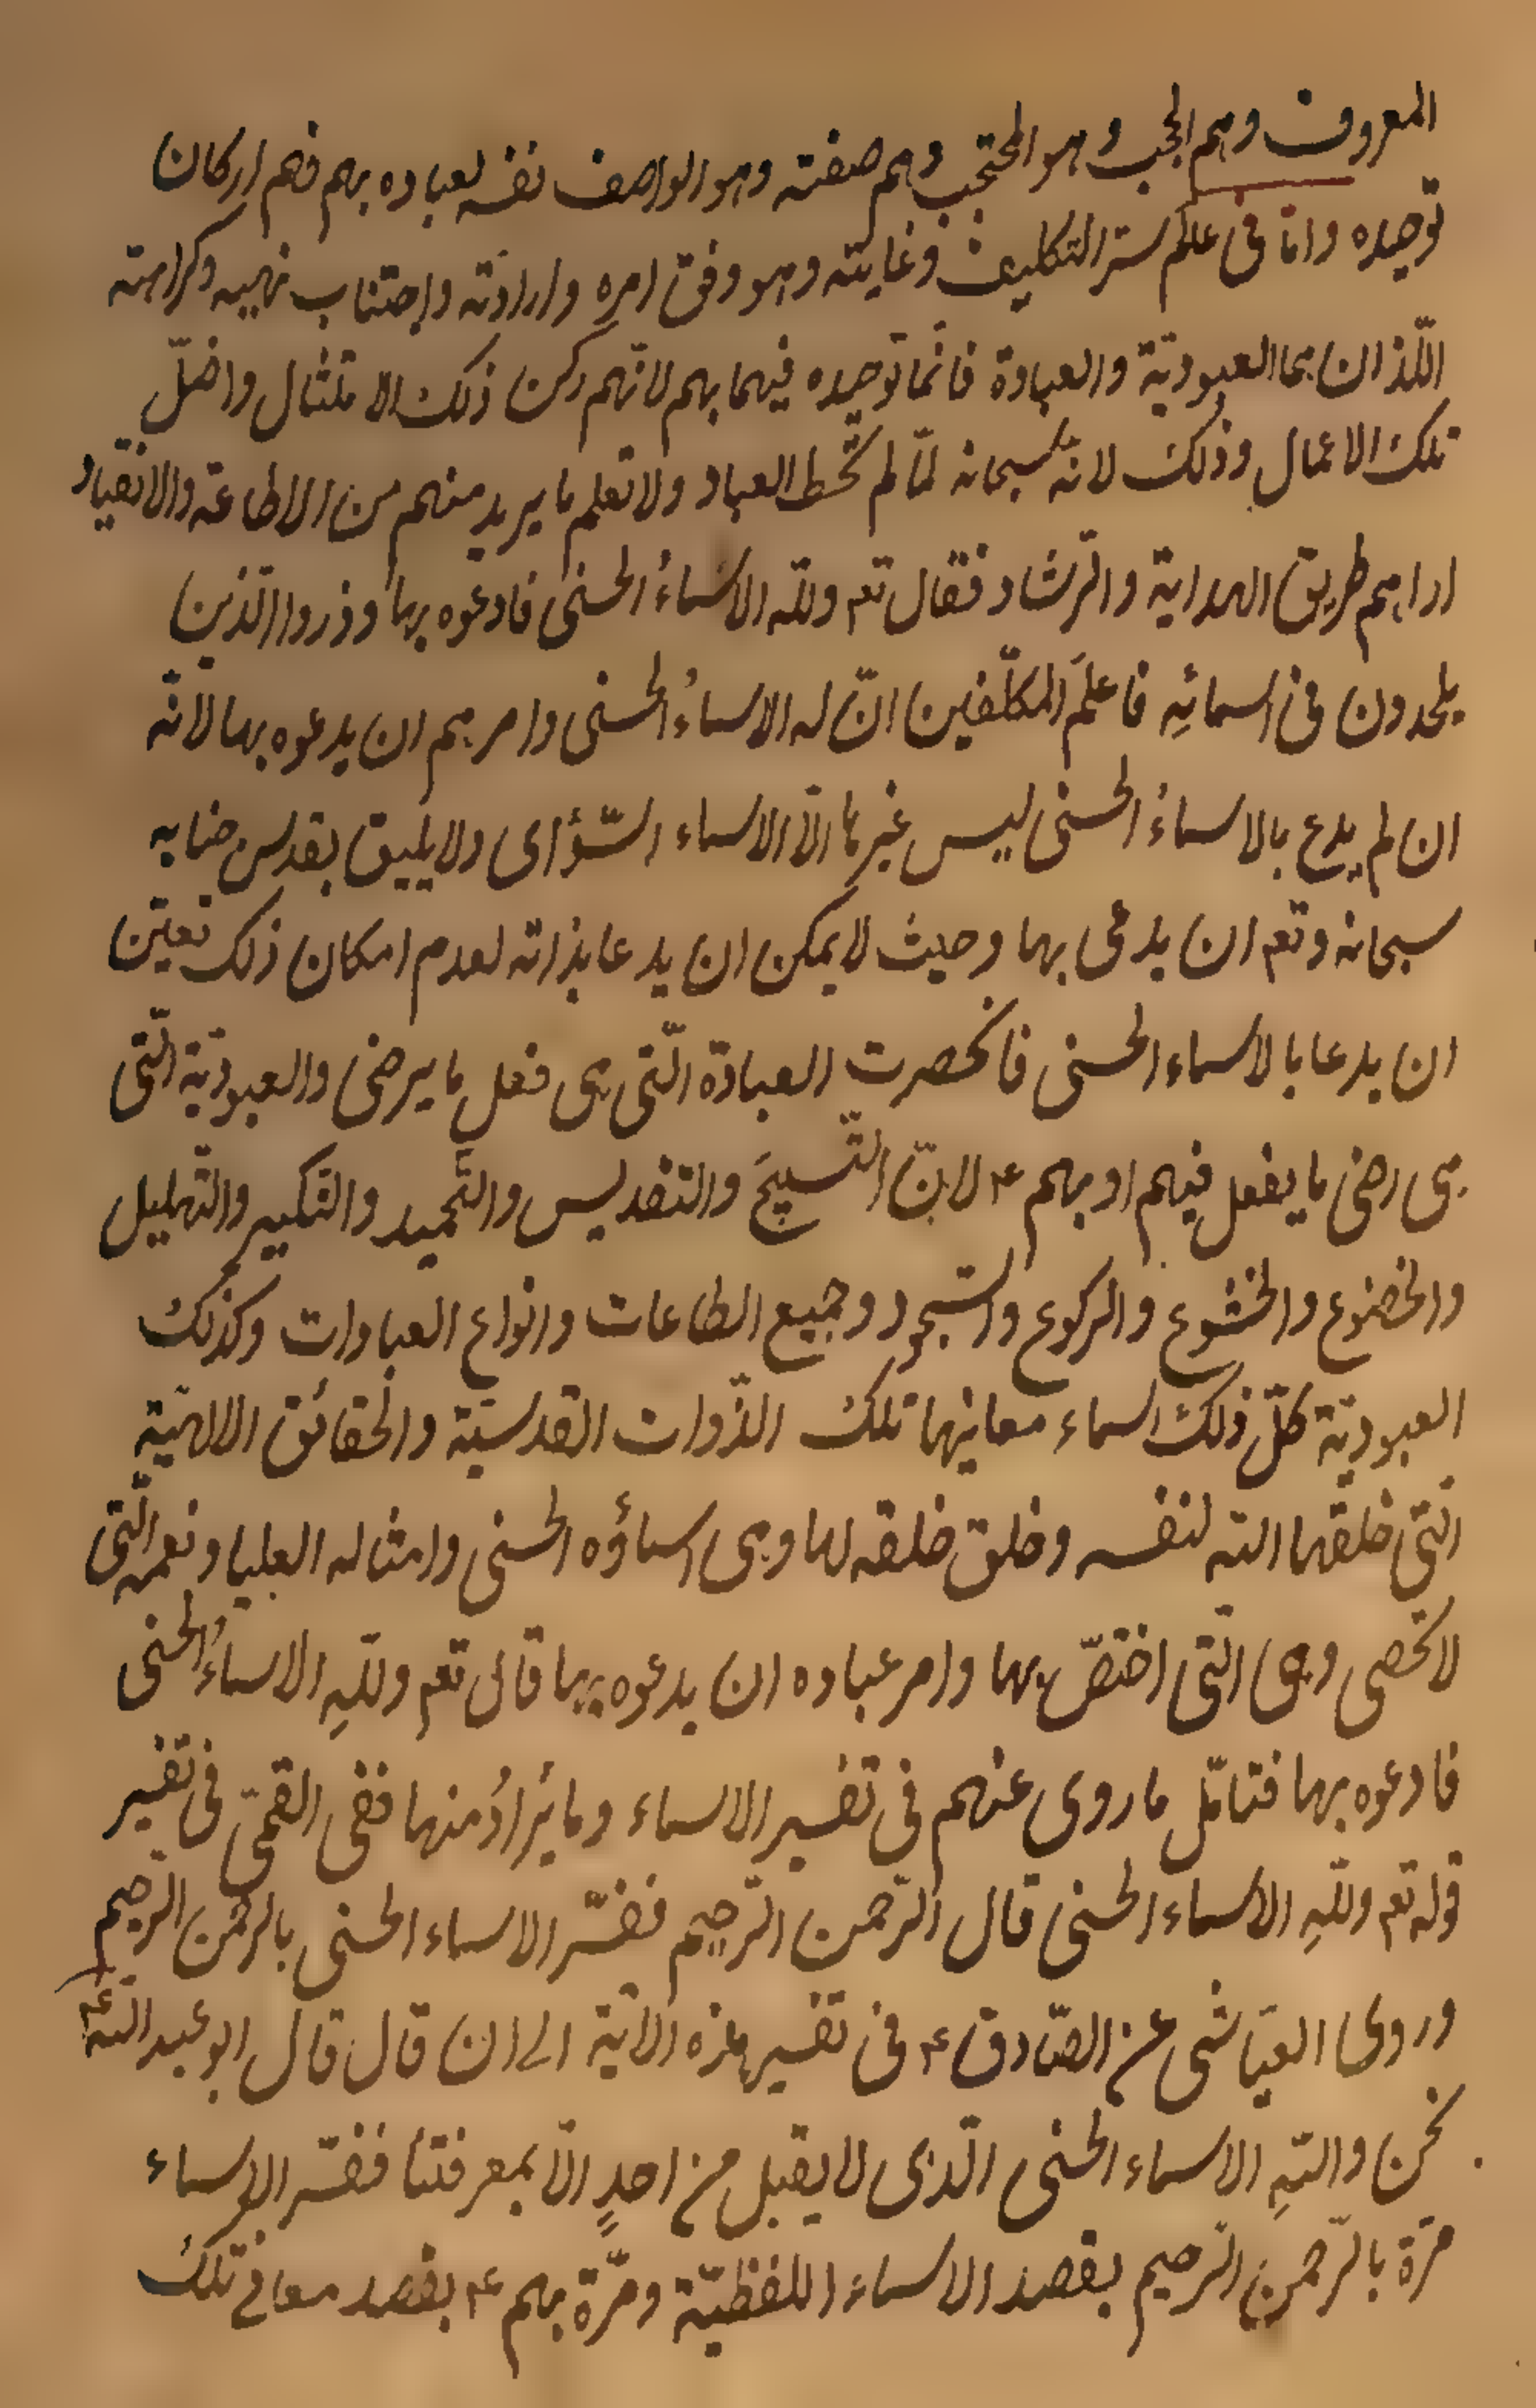 المعروف وهم الحجب وهو المحتجب وهم صفته وهو الواصف نفسه لعباده بهم فهم اركان
توحيده وامّا فى علم ستر التكليف وغايته وهو وفق امره وارادته واجتناب نهيه وكراهته
اللّذان هما العبوديّة والعبادة فانّما توحيده فيهما بهم لانّهم ركن ذلك الامتثال واصل
تلك الاعمال وذلك لانّه سبحانه لمّا لم تحط العباد ولا تعلم ما يريد منهم من الاطاعة والانقياد
اراهم طريق الهداية والرّشاد فقال تعم وللّه الاسماءُ الحسنى فادعوه بها وذروا الّذين
يلحدون فى اسمائِه فاعلَم المكلّفين انّ له الاسماءُ الحسنى وامرهم ان يدعوه بها لانّه
ان لم يدع بالاسماءُ الحسنى ليس غيرها الّا الاسماء السّؤاى ولا يليق بقدس جنابه
سبحانه وتعم ان يدعى بها وحيث لا يمكن ان يدعا بذاته لعدم امكان ذلك تعيّن
ان يدعا بالاسماء الحسنى فانحصرت العبادة الّتى هى فعل ما يرضى والعبوديّة الّتى
هى رضى ما يفعل فيهم او بهم ء لانّ التّسبيحَ والتقديس والتّحميد والتّكبير والتّهليل
والخضوع والخشوع والركوع والسّجود وجميع الطاعات وانواع العبادات وكذلك
العبوديّة كلّ ذلك اسماء معانيها تلك الذّوات القدسيّة والحقائق الالهيّة
الّتى خلقها اللّه لنفسه وخلق خلقه لها وهى اسماؤه الحسنى وامثاله العليا ونعمه الّتى
لا تحصى وهى الّتى اختصّ بها وامر عباده ان يدعوه بها قال تعم وللّهِ الاسماءُ الحسنى
فادعوه بها فتامّل ما روى عنهم فى تفسير الاسماء وما يُرادُ منها ففى القمىّ فى تفسير
قوله تعم وللّهِ الاسماء الحسنى قال الرّحمن الرّحيم ففسّر الاسماء الحسنى بالرّحمن الرّحيم
وروى العيّاشى عن الصّادق ء فى تفسير هذه الآية الى ان قال قال ابو عبد اللّه ء
نحن واللّهِ الاسماء الحسنى الّذى لا يقبل من احدٍ الّا بمعرفتنا ففسّر الاسماء
مرّة بالرّحمن الرّحيم بقصد الاسماء اللفظيّة ومرّة بهم ء بقصد معانى تلك